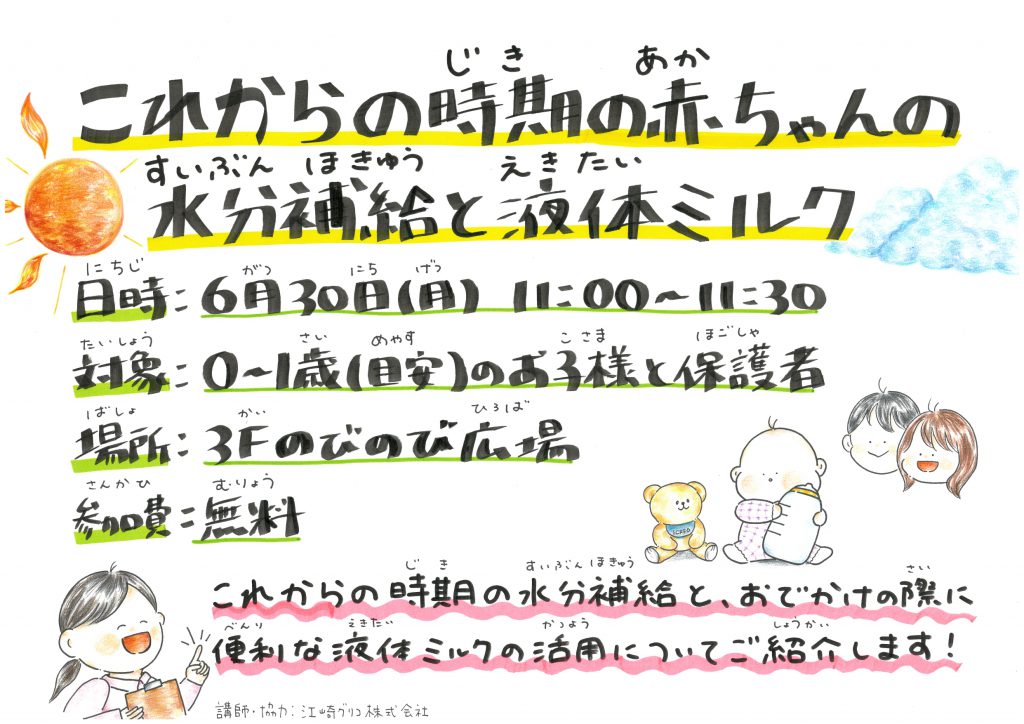 じき あか
これからの時期の赤ちゃんの
すいぶん ほきゅう えきたい
水分補給と液体ミルク
にちじ がつ にち げつ
日時：6月30日(月) 11：00～11：30
たいしょう さい めやす こさま ほごしゃ
対象：0～1歳(目安)のお子様と保護者
ばしょ かい ひろば
場所：3Fのびのび広場
さんかひ むりょう
参加費：無料
じき すいぶんほきゅう さい
これからの時期の水分補給と、おでかけの際に
べんり えきたい かつよう しょうかい
便利な液体ミルクの活用についてご紹介します！
講師・協力：江崎グリコ株式会社